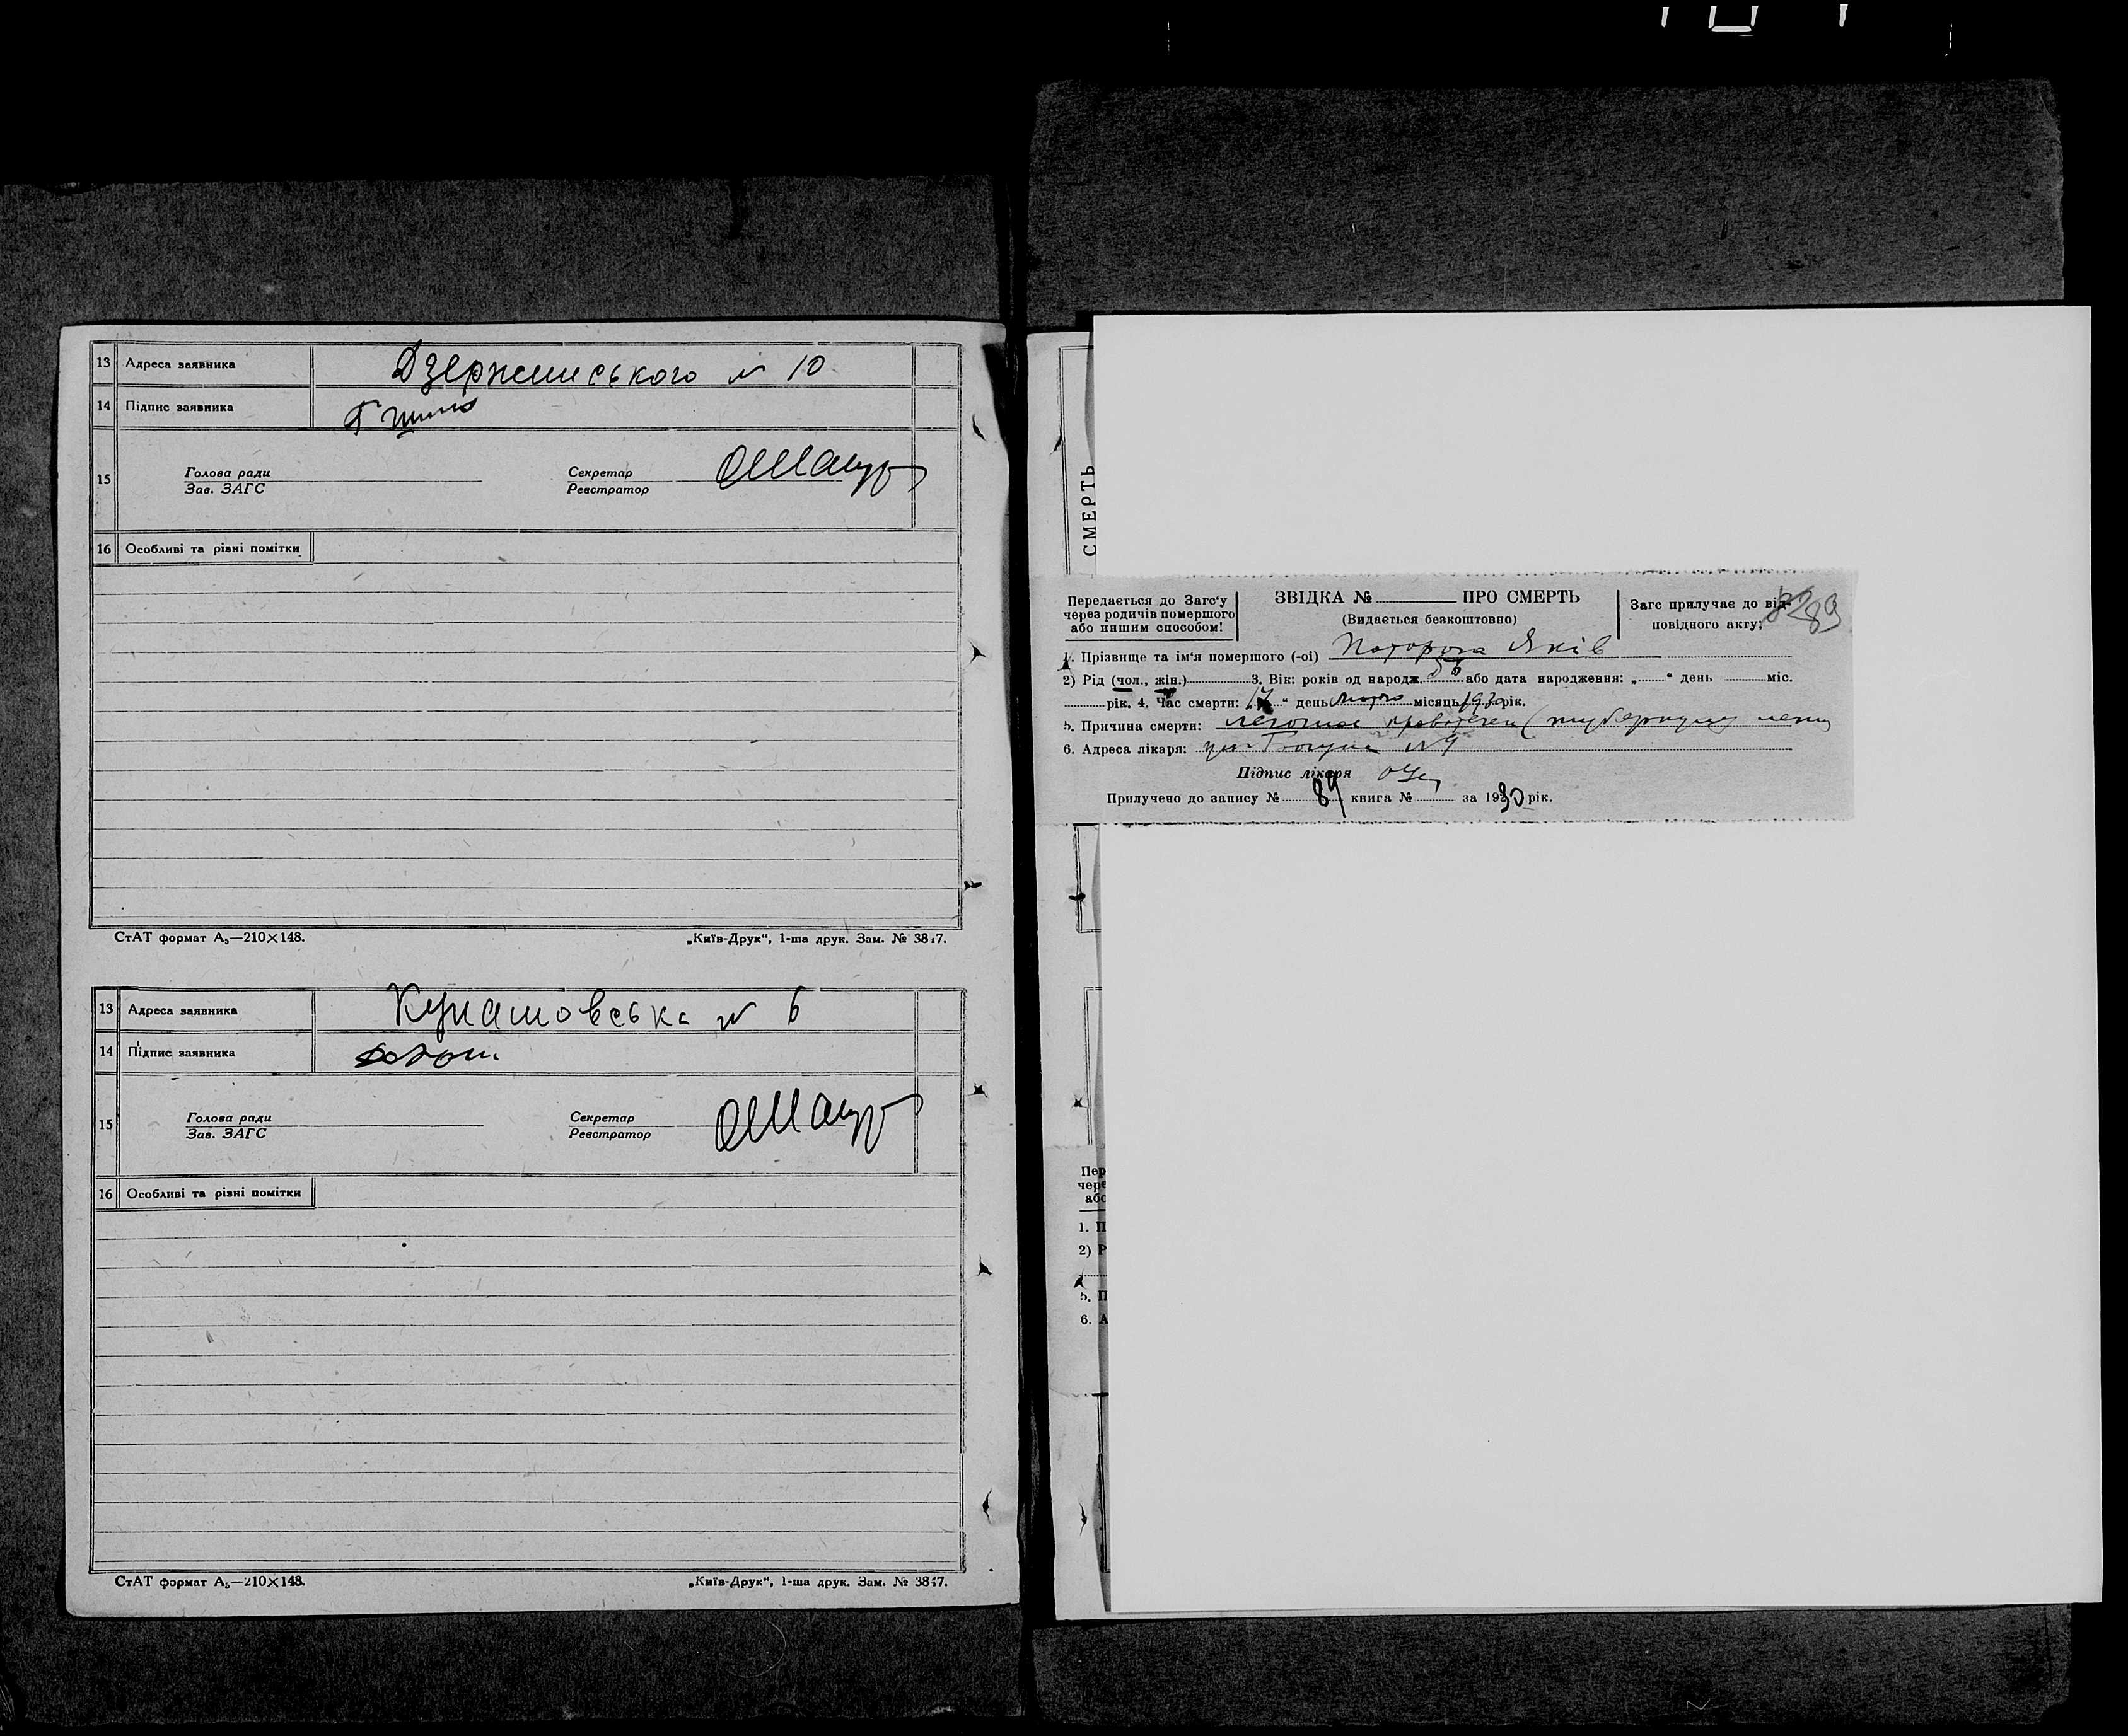 13 Адреса заявника Дзержинського № 10
14 Підпис заявника
15 Голова ради Секретар
Зав. ЗАГС Реєстратор
16 Особливі та різні помітки
СтАТ формат А₅—210×148. „Київ-Друк“, 1-ша друк. Зам. № 3847.
13 Адреса заявника № 6
14 Підпис заявника
15 Голова ради Секретар
Зав. ЗАГС Реєстратор
16 Особливі та різні помітки
СтАТ формат А₅—210×148. „Київ-Друк“, 1-ша друк. Зам. № 3847.
СМЕРТЬ
Передається до Загс'у
через родичів помершого
або иншим способом!
ЗВІДКА № ПРО СМЕРТЬ
(Видається безкоштовно)
Загс прилучає до від-
повідного акту; 89
1. Прізвище та ім'я помершого (-ої) Яків
2) Рід (чол., жін.) 3. Вік: років од народж. 56 або дата народження: „ “ день міс.
рік. 4. Час смерти: „17“ день місяць 1930 рік.
5. Причина смерти: легочна
6. Адреса лікаря: вул.
Підпис лікаря
Прилучено до запису № 89 книга № за 1930 рік.
Пер
чере
або
1. П
2) Р
5. П
6. А